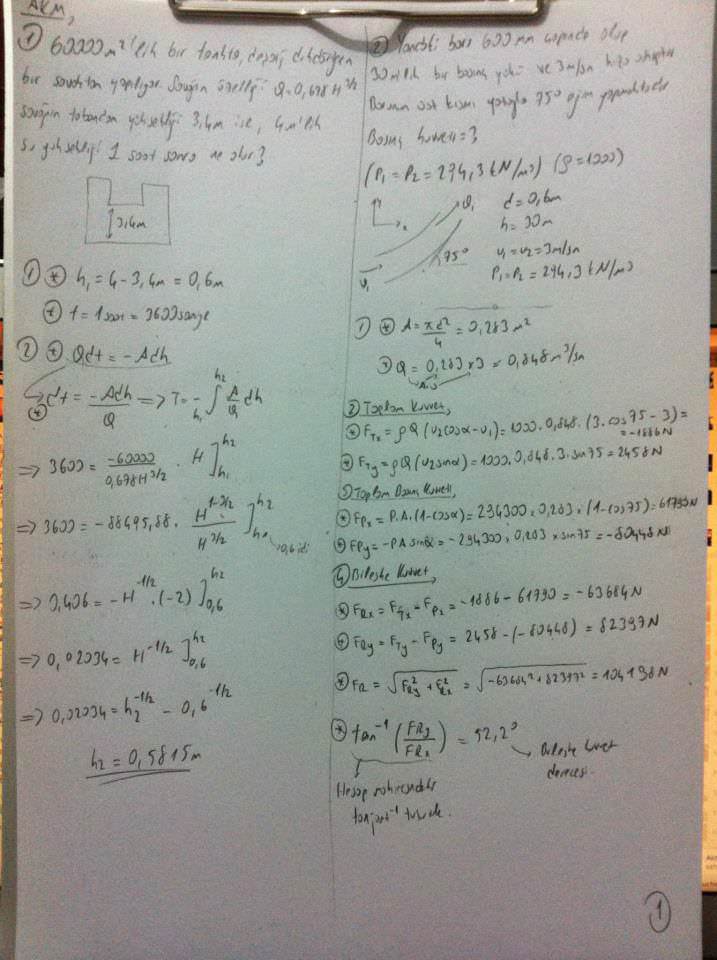 AKM,
① 60000 m² lik bir tankta, deşarj dikdörtgen
bir savaktan yapılıyor. Savağın özelliği Q=0,678 H^3/2
savağın tabandan yüksekliği 3,4m ise, 4m'lik
su yüksekliği 1 saat sonra ne olur?
3,4m
① * h₁ = 4 - 3,4m = 0,6m
* t = 1 saat = 3600 saniye
② * Qdt = -Adh
* dt = -Adh / Q => T = - ∫ h₁ h₂ A/Q dh
=> 3600 = -60000 / 0,678H^3/2 · H ] h₁ h₂
=> 3600 = -88495,88 · H^1-3/2 / H^3/2 ] h₁ h₂ → 0,6 idi
=> 0,406 = -H^-1/2 · (-2) ] 0,6 h₂
=> 0,02034 = H^-1/2 ] 0,6 h₂
=> 0,02034 = h₂^-1/2 - 0,6^-1/2
h₂ = 0,5815m
② Yandaki boru 600 mm çapında olup
30m'lik bir basınç yükü ve 3m/sn hızla
Borunun üst kısmı yatayla 75° açı yapmaktadır
Basınç kuvveti = ?
(P₁ = P₂ = 294,3 kN/m²) (ρ = 1000)
y
x
d = 0,6m
h = 30m
75°
v₁ = v₂ = 3m/sn
v₁
P₁ = P₂ = 294,3 kN/m²
① * A = πd²/4 = 0,283 m²
* Q = 0,283 x 3 = 0,848 m³/sn
A.v
② Toplam Kuvvet,
* FTx = ρQ(v₂cosα - v₁) = 1000 . 0,848 . (3.cos75 - 3) =
= -1886N
* FTy = ρQ(v₂sinα) = 1000 . 0,848 . 3 . sin75 = 2458 N
③ Toplam Basınç Kuvveti,
* FPx = P.A.(1-cosα) = 294300 x 0,283 x (1-cos75) = 61790N
* FPy = -PA sinα = -294300 x 0,283 x sin75 = -80448 N
④ Bileşke Kuvvet,
* FRx = FTx - FPx = -1886 - 61790 = -63684N
* FRy = FTy - FPy = 2458 - (-80448) = 82397N
* FR = √FRy² + FRx² = √-63684² + 82397² = 104138N
* tan⁻¹ (FRy / FRx) = 52,2°
→ Bileşke kuvvet
derecesi.
Hesap makinesindeki
tanjant⁻¹ tuşu
①